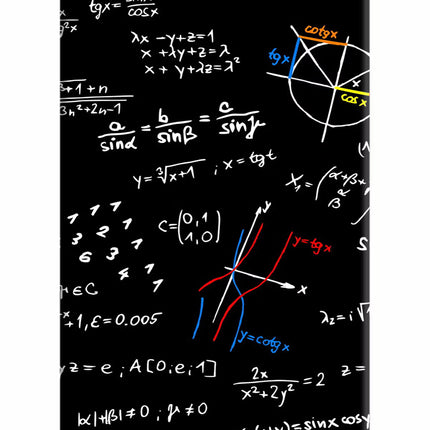 tgx = sinx/cosx
x/g²x
λx - y + z = 1
x + λy + z = λ
x + y + λz = λ²
cotgx
tgx
x
cosx
3+1 + n
3n²+2n-1
a/sinα = b/sinβ = c/sinμ
y = ∛x+1 ; x = tgt
X₁ = (α+β+
α
β
1 1 1
3 2 1
6 3 1
4 1
1
C = (0,1
1,0)
y
y=tgx
x
y=cotgx
∈C
+1, ε = 0.005
λ₂ = i√
z = e ; A[0;e;1]
2x/x²+2y² = 2
z =
|α|+|β| ≠ 0 ; μ ≠ 0
= sinx cosy